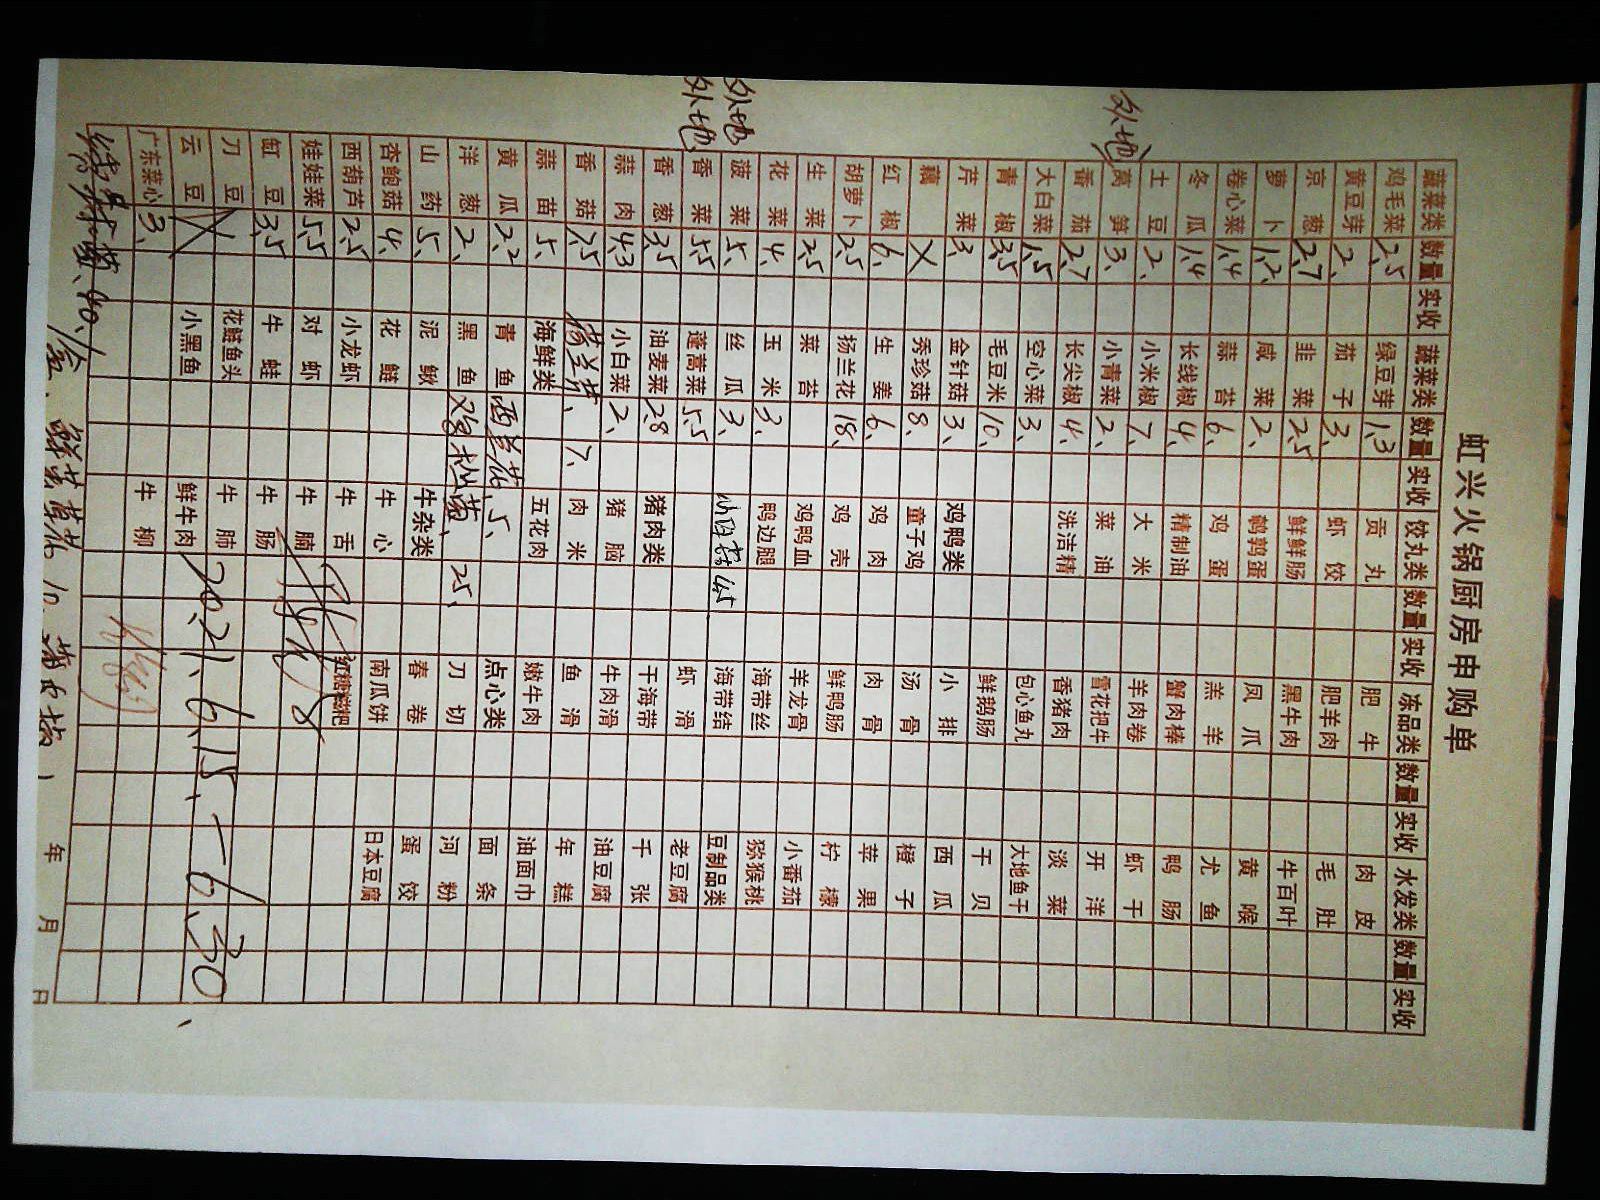 虹兴火锅厨房申购单
蔬菜类 数量 实收 蔬菜类 数量 实收 饺丸类 数量 实收 冻品类 数量 实收 水发类 数量 实收
鸡毛菜 2.5 绿豆芽 1.3 贡丸 肥牛 肉皮
黄豆芽 2、 茄子 3、 虾饺 肥羊肉 毛肚
京葱 2.7 韭菜 2.5 鲜鲜肠 黑牛肉 牛百叶
萝卜 1.2 咸菜 2、 鹌鹑蛋 凤爪 黄喉
卷心菜 1.4 蒜苔 6、 鸡蛋 羔羊 尤鱼
冬瓜 1.4 长线椒 4、 精制油 蟹肉棒 鸭肠
土豆 2、 小米椒 7、 大米 羊肉卷 虾干
外地 莴笋 3、 小青菜 2、 菜油 雪花把牛 开洋
番茄 2.7 长尖椒 4、 洗洁精 香猪肉 淡菜
大白菜 1.5 空心菜 3、 包心鱼丸 大地鱼干
青椒 3.5 毛豆米 10、 鲜鹅肠 干贝
芹菜 3、 金针菇 3、 鸡鸭类 小排 西瓜
藕 X 秀珍菇 8、 童子鸡 汤骨 橙子
红椒 6、 生姜 6、 鸡肉 肉骨 苹果
胡萝卜 2.5 扬兰花 18、 鸡壳 鲜鸭肠 柠檬
生菜 2.5 菜苔 鸡鸭血 羊龙骨 小番茄
花菜 4、 玉米 3、 鸭边腿 海带丝 猕猴桃
外地 菠菜 5、 丝瓜 3、 4.5 海带结 豆制品类
外地 香菜 5.5 蓬蒿菜 5.5 虾滑 老豆腐
香葱 3.5 油麦菜 2.8 猪肉类 干海带 千张
蒜肉 4.3 小白菜 2、 猪脑 牛肉滑 油豆腐
香菇 7.5 荷兰芹、 7、 肉米 鱼滑 年糕
蒜苗 5、 海鲜类 五花肉 嫩牛肉 油面巾
黄瓜 2.2 青鱼 西兰花、5、 点心类 面条
洋葱 2、 黑鱼 鸡枞菌、 25、 刀切 河粉
山药 5、 泥鳅 牛杂类 春卷 蛋饺
杏鲍菇 4、 花鲢 牛心 南瓜饼 日本豆腐
西葫芦 2.5 小龙虾 牛舌 红糖糍粑
娃娃菜 5.5 对虾 牛腩
缸豆 3.5 牛蛙 牛肠
刀豆 X 花鲢鱼头 牛肺
云豆 X 小黑鱼 鲜牛肉 2021、6、15、—6、30、
广东菜心 3、 牛柳
40、/盒、 10、
年 月 日